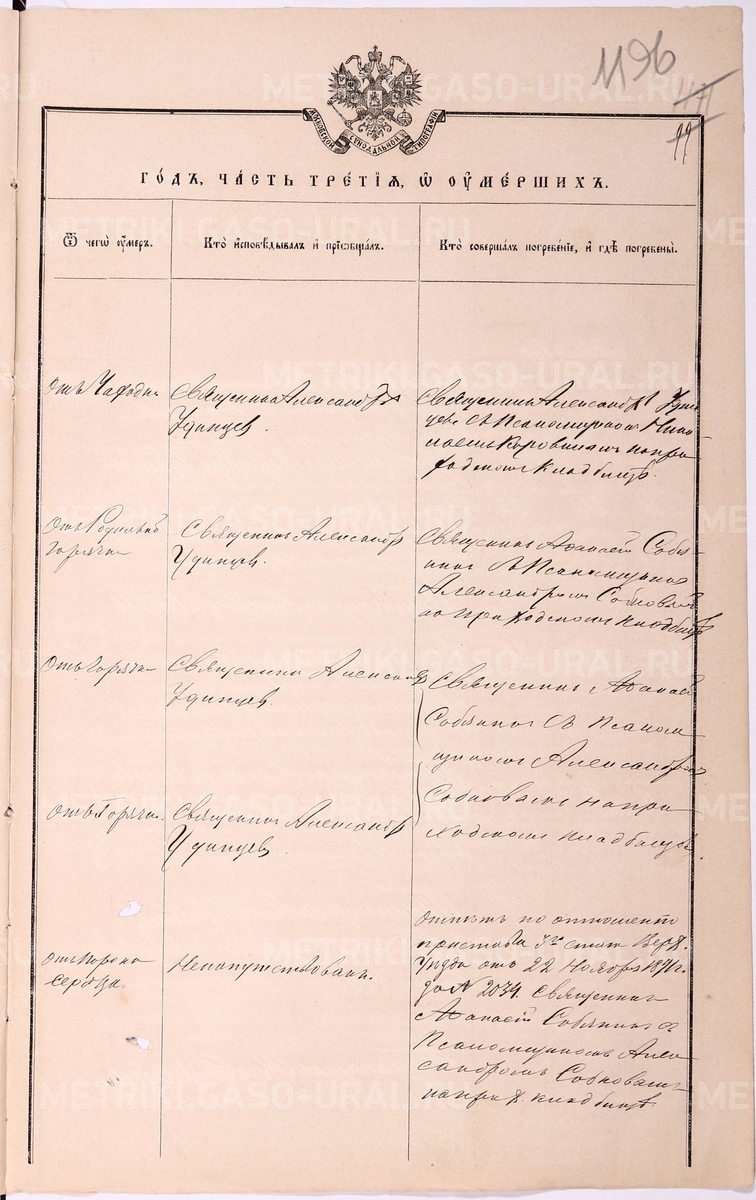 1196
99
МОСКОВСКОЙ СѴНОДАЛЬНОЙ ТИПОГРАФІИ
ГО́ДЪ, ЧА́СТЬ ТРЕ́ТІѦ, Ѽ ОУ҆МЕ́РШИХЪ.
Ѿ чегѡ̀ оу҆́меръ.
Кто̀ и҆сповѣ́дывалъ и҆ прїѡбща́лъ.
Кто̀ соверша́лъ погребе́нїе, и҆ гдѣ̀ погребены̀.
Отъ
Священникъ Александръ
Удинцев.
Священникъ Александръ Удин
цевъ съ Псаломщикомъ Нико
лаемъ на при
ходскомъ кладбищѣ.
Отъ Родильной
горячки
Священникъ Александръ
Удинцев.
Священникъ Афанасій Собя-
нинъ съ Псаломщикомъ
Александромъ
на приходскомъ кладбищѣ
Отъ горячки
Священникъ Александръ
Удинцев.
Священникъ Афанасій
Собянинъ съ Псалом
щикомъ Александромъ
на при
ходскомъ кладбищѣ.
Отъ горячки.
Священникъ Александръ
Удинцев.
Отъ порока
сердца.
Ненапутствованъ.
Отпѣтъ по отношенію
пристава 3го стана Верх.
Уѣзда отъ 22 Ноября 1891 г.
за № 2034. Священникъ
Афанасій Собянинъ съ
Псаломщикомъ Алек
сандромъ
на прих. кладбищѣ.
METRIKI.GASO-URAL.RU